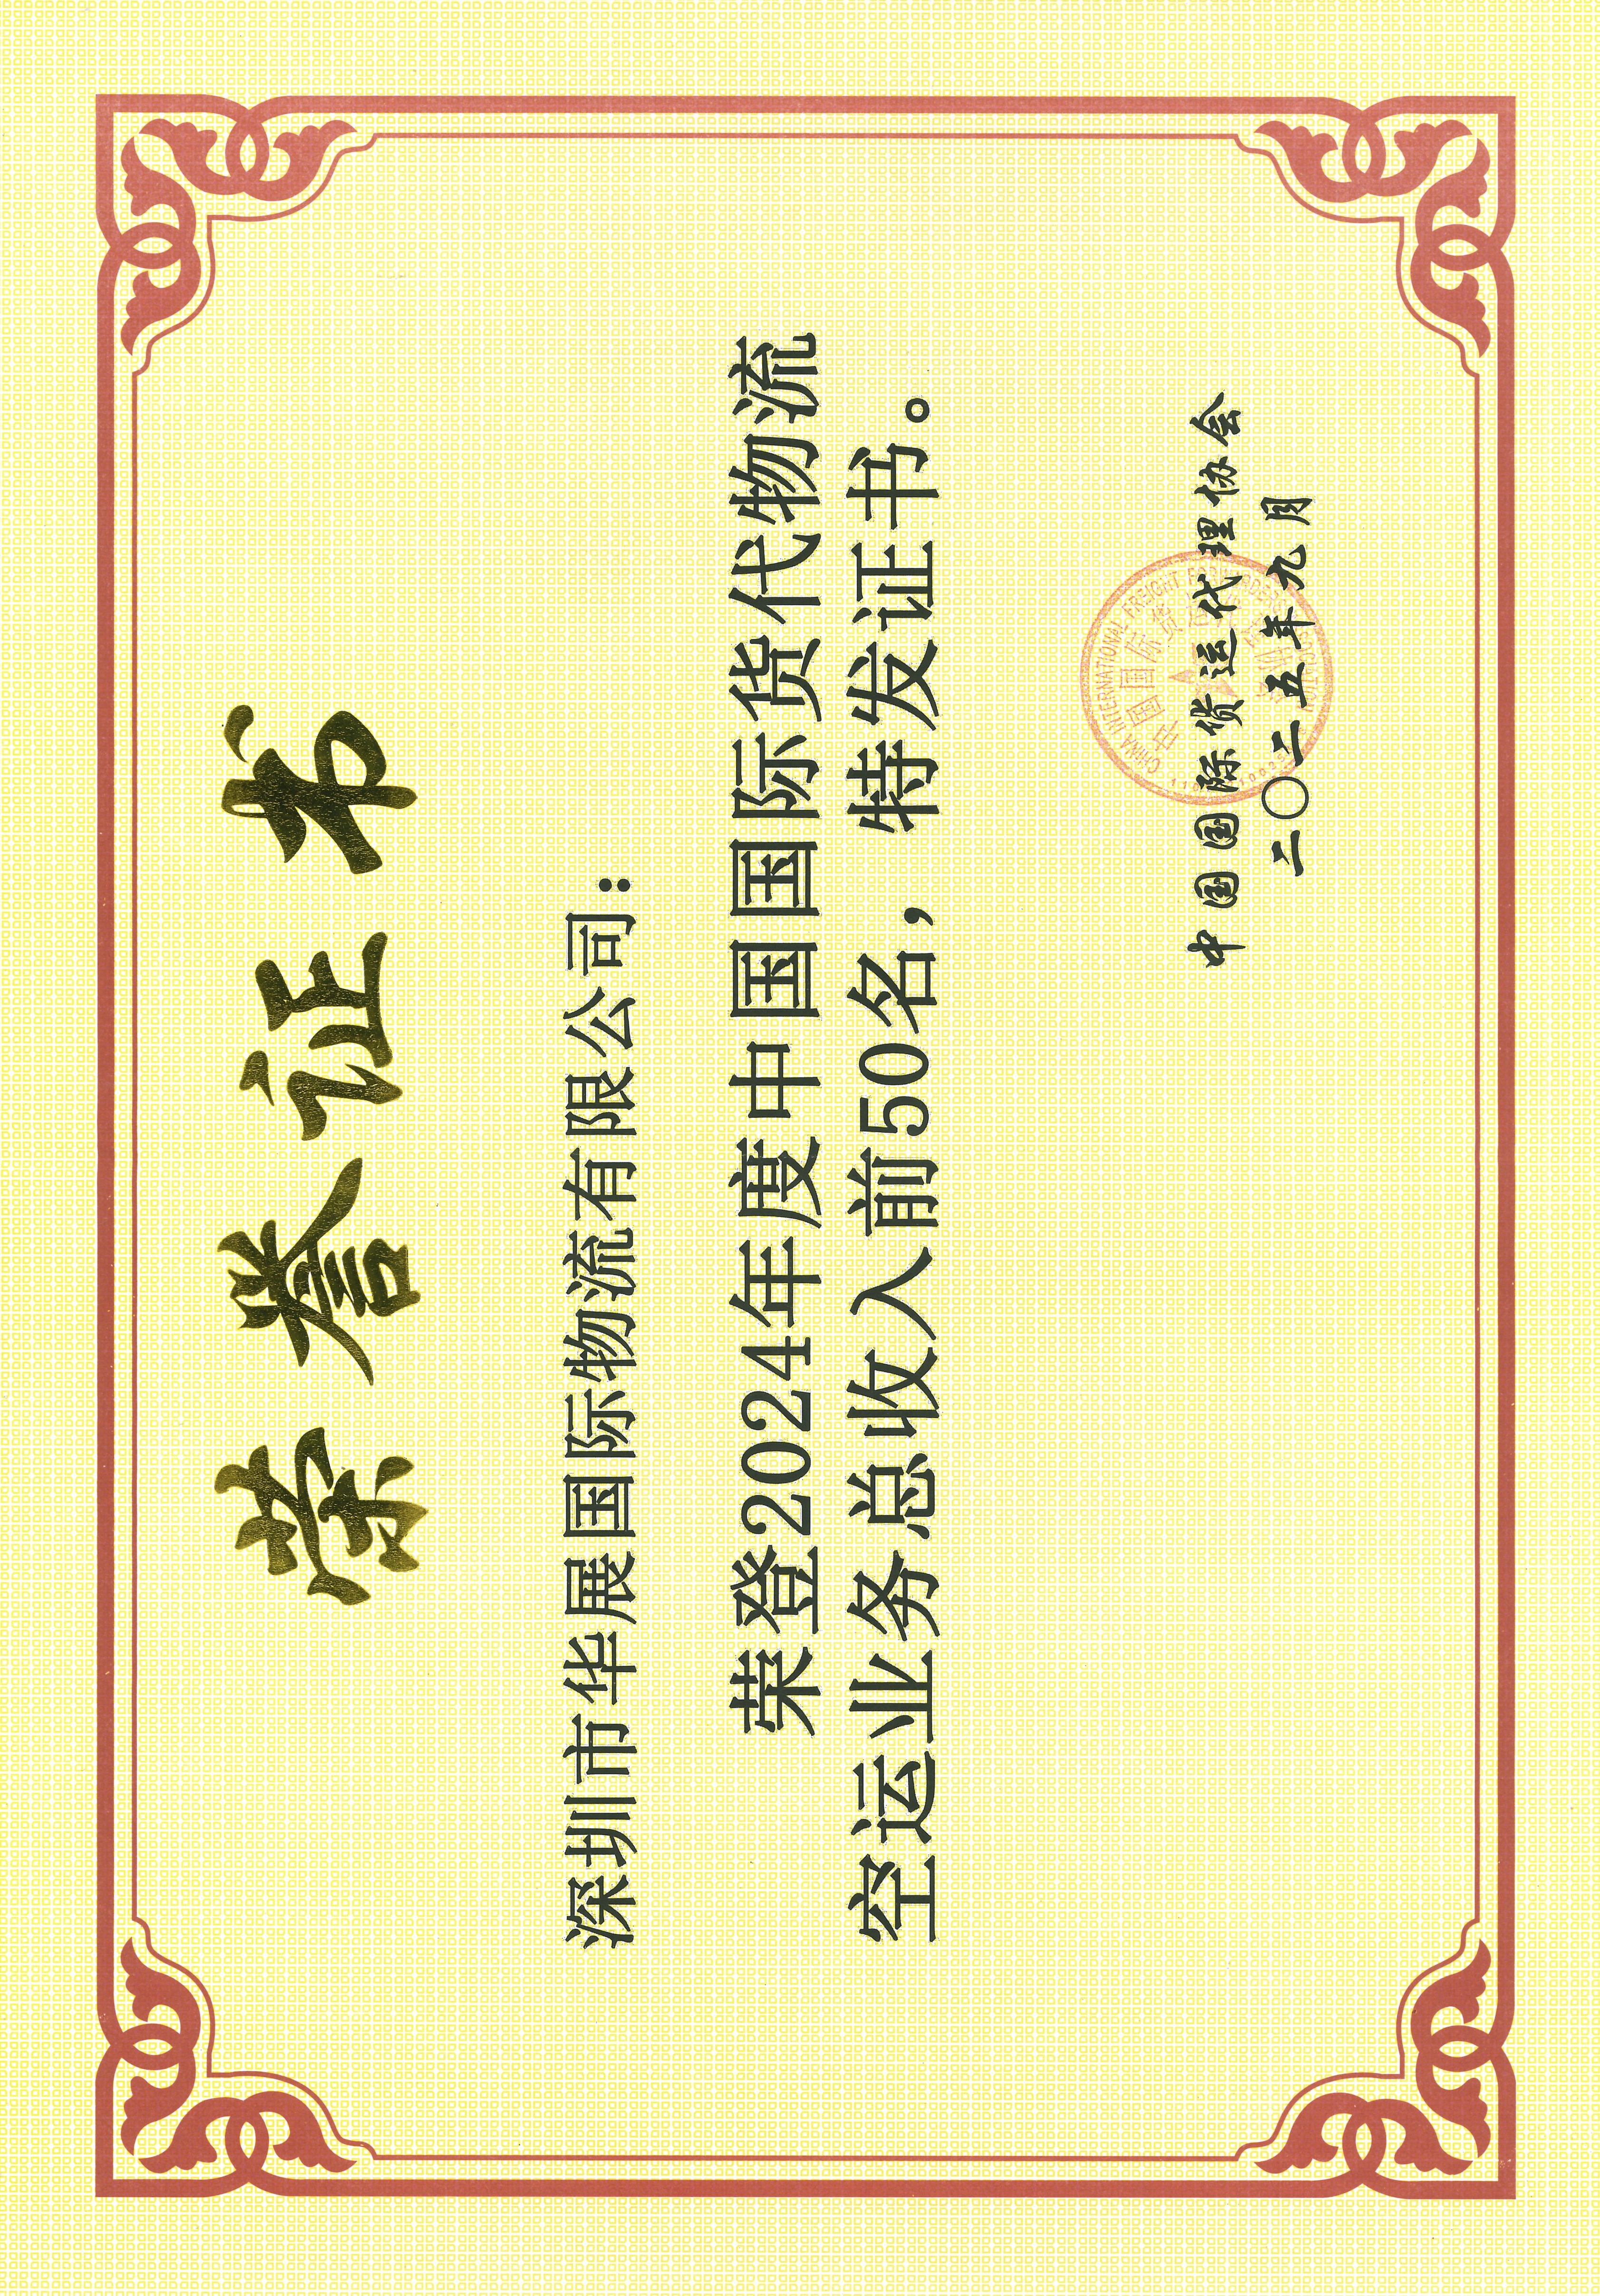 荣誉证书
深圳市华展国际物流有限公司：
荣登2024年度中国国际货代物流
空运业务总收入前50名，特发证书。
中国国际货运代理协会
二〇二五年九月
CHINA INTERNATIONAL FREIGHT FORWARDERS ASSOCIATION
中国国际货运代理协会